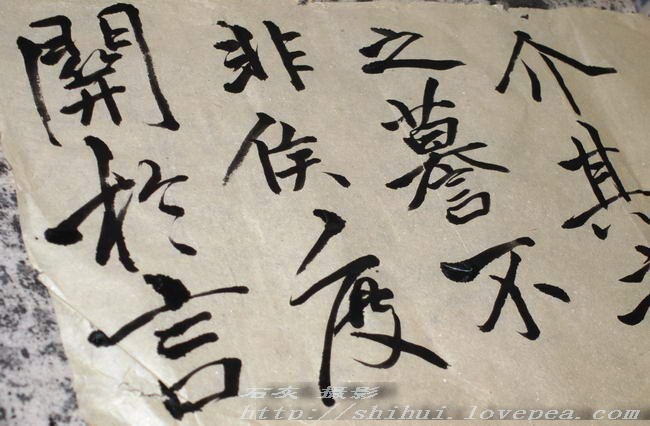 介其
之謩不
非侯度
開於言
石灰 摄影
http://shihui.lovepea.com